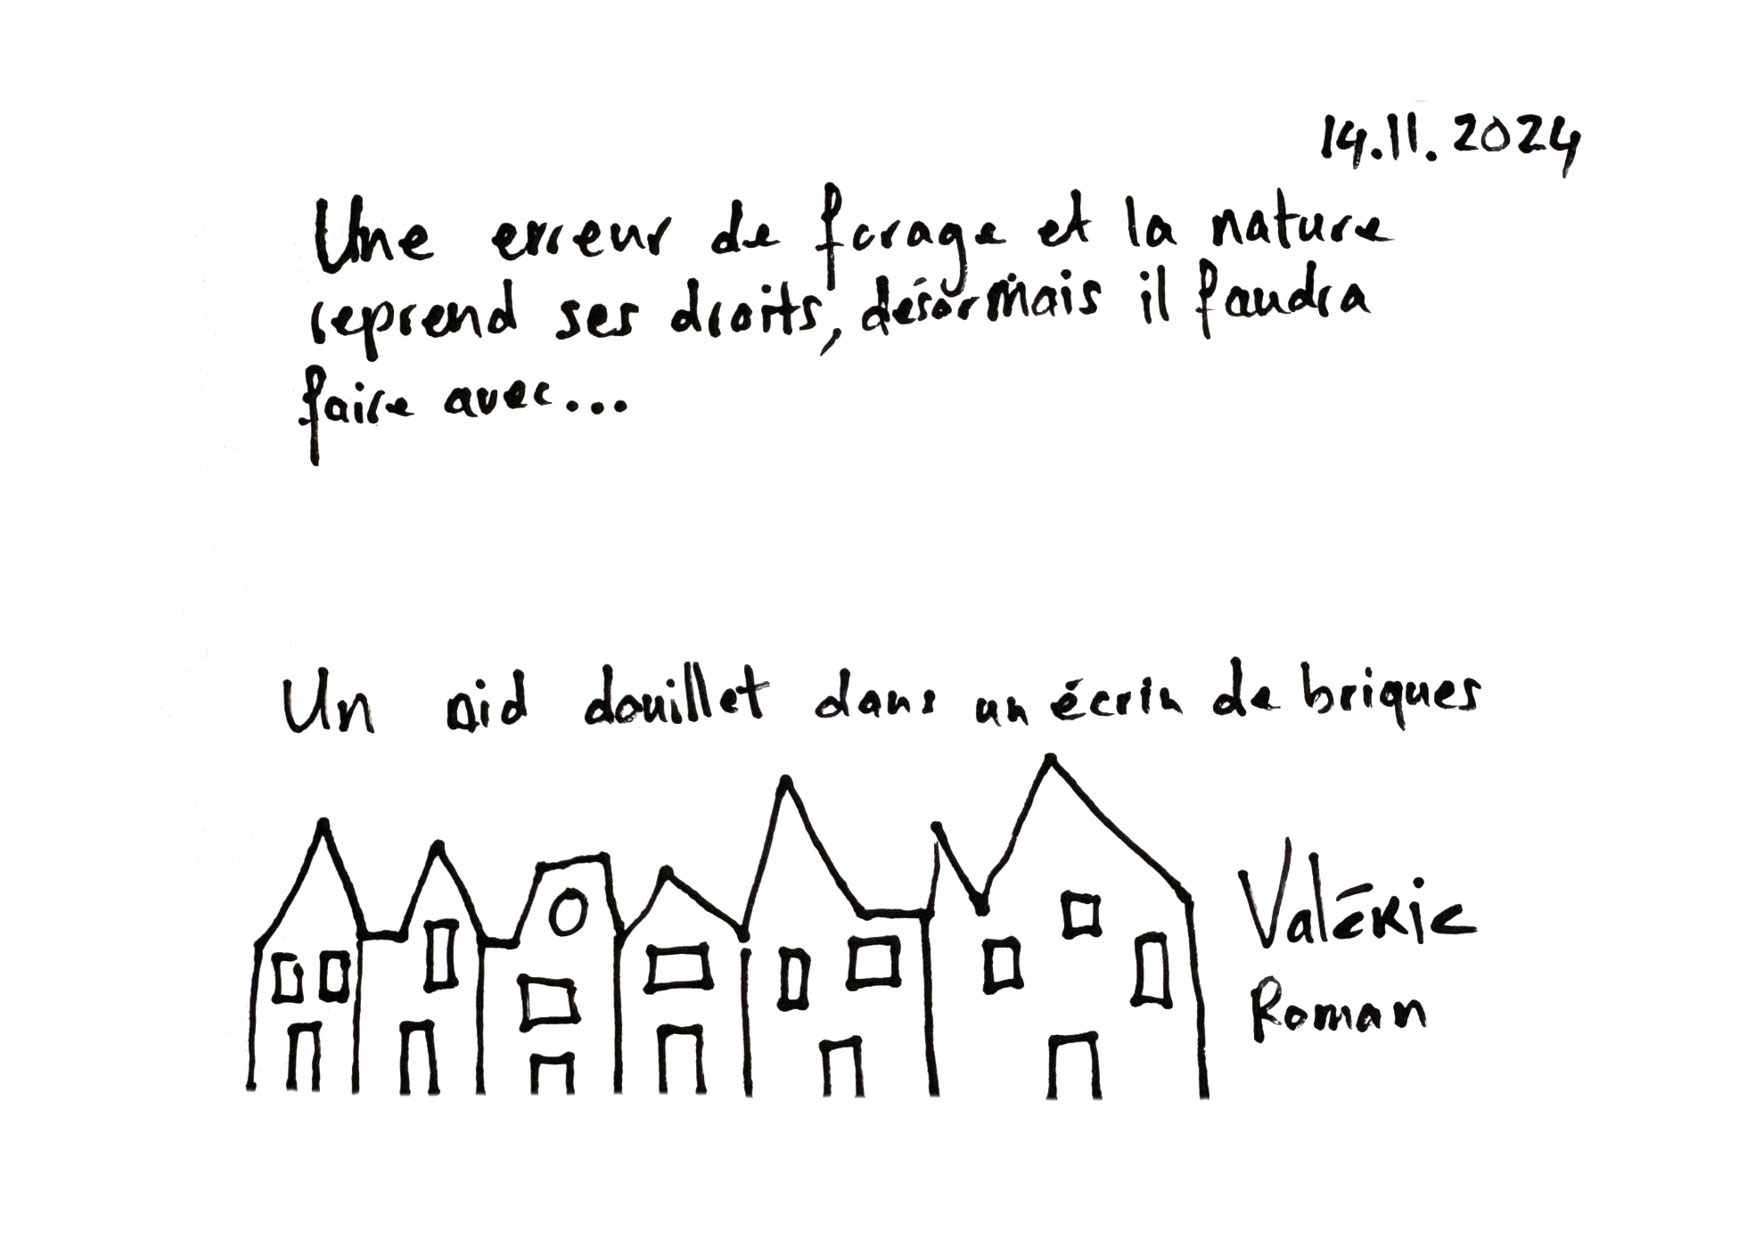 14.11.2024
Une erreur de forage et la nature
reprend ses droits, désormais il faudra
faire avec...
Un nid douillet dans un écrin de briques
Valérie
Roman